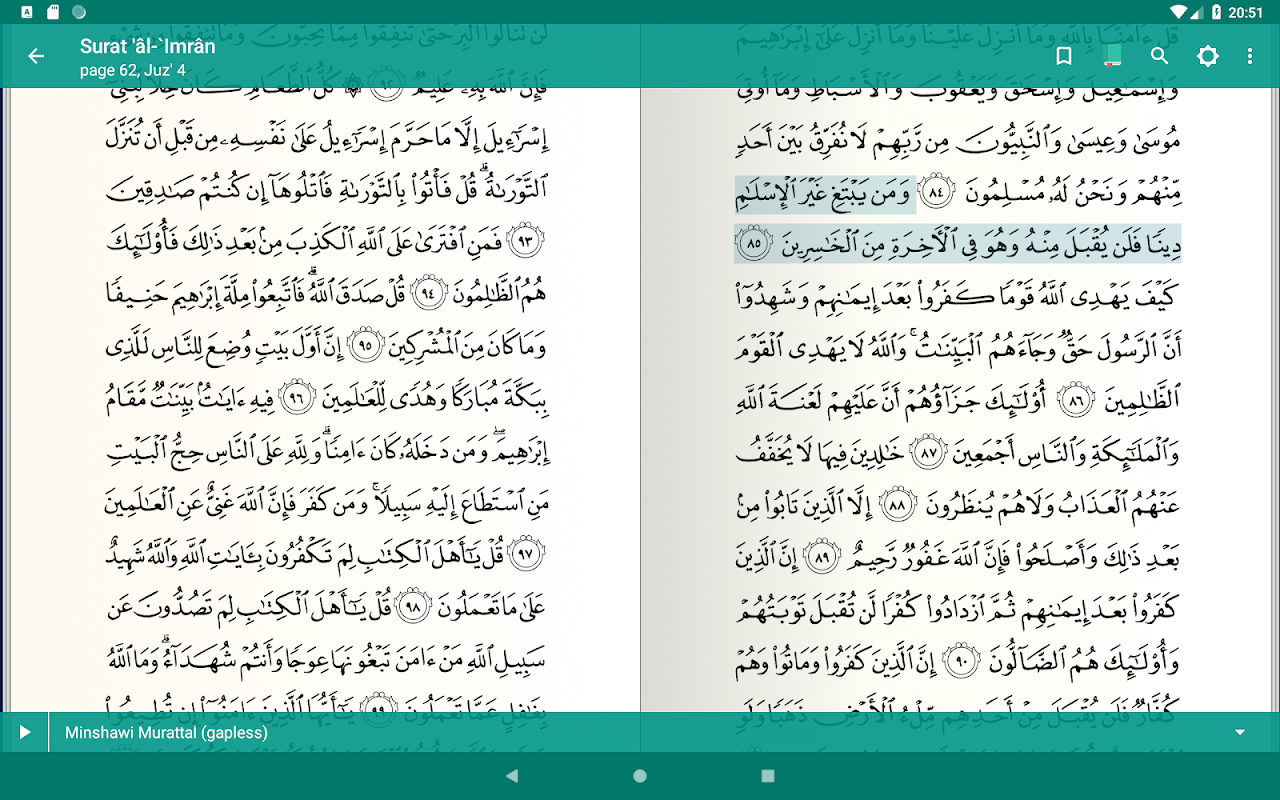 20:51
Surat 'âl-`Imrân
page 62, Juz' 4
قُلْ ءَامَنَّا بِٱللَّهِ وَمَآ أُنزِلَ عَلَيْنَا وَمَآ أُنزِلَ عَلَىٰٓ إِبْرَٰهِيمَ
وَإِسْمَٰعِيلَ وَإِسْحَٰقَ وَيَعْقُوبَ وَٱلْأَسْبَاطِ وَمَآ أُوتِىَ
مُوسَىٰ وَعِيسَىٰ وَٱلنَّبِيُّونَ مِن رَّبِّهِمْ لَا نُفَرِّقُ بَيْنَ أَحَدٍ
مِّنْهُمْ وَنَحْنُ لَهُۥ مُسْلِمُونَ ٨٤ وَمَن يَبْتَغِ غَيْرَ ٱلْإِسْلَٰمِ
دِينًا فَلَن يُقْبَلَ مِنْهُ وَهُوَ فِى ٱلْأَخِرَةِ مِنَ ٱلْخَٰسِرِينَ ٨٥
كَيْفَ يَهْدِى ٱللَّهُ قَوْمًا كَفَرُوا۟ بَعْدَ إِيمَٰنِهِمْ وَشَهِدُوٓا۟
أَنَّ ٱلرَّسُولَ حَقٌّ وَجَآءَهُمُ ٱلْبَيِّنَٰتُ ۚ وَٱللَّهُ لَا يَهْدِى ٱلْقَوْمَ
ٱلظَّٰلِمِينَ ٨٦ أُو۟لَٰٓئِكَ جَزَآؤُهُمْ أَنَّ عَلَيْهِمْ لَعْنَةَ ٱللَّهِ
وَٱلْمَلَٰٓئِكَةِ وَٱلنَّاسِ أَجْمَعِينَ ٨٧ خَٰلِدِينَ فِيهَا لَا يُخَفَّفُ
عَنْهُمُ ٱلْعَذَابُ وَلَا هُمْ يُنظَرُونَ ٨٨ إِلَّا ٱلَّذِينَ تَابُوا۟ مِنۢ
بَعْدِ ذَٰلِكَ وَأَصْلَحُوا۟ فَإِنَّ ٱللَّهَ غَفُورٌ رَّحِيمٌ ٨٩ إِنَّ ٱلَّذِينَ
كَفَرُوا۟ بَعْدَ إِيمَٰنِهِمْ ثُمَّ ٱزْدَادُوا۟ كُفْرًا لَّن تُقْبَلَ تَوْبَتُهُمْ
وَأُو۟لَٰٓئِكَ هُمُ ٱلضَّآلُّونَ ٩٠ إِنَّ ٱلَّذِينَ كَفَرُوا۟ وَمَاتُوا۟ وَهُمْ
كُفَّارٌ فَلَن يُقْبَلَ مِنْ أَحَدِهِم مِّلْءُ ٱلْأَرْضِ ذَهَبًا وَلَوِ
لَن تَنَالُوا۟ ٱلْبِرَّ حَتَّىٰ تُنفِقُوا۟ مِمَّا تُحِبُّونَ ۚ وَمَا تُنفِقُوا۟
فَإِنَّ ٱللَّهَ بِهِۦ عَلِيمٌ ٩٢ ۞ كُلُّ ٱلطَّعَامِ كَانَ حِلًّا لِّبَنِىٓ
إِسْرَٰٓءِيلَ إِلَّا مَا حَرَّمَ إِسْرَٰٓءِيلُ عَلَىٰ نَفْسِهِۦ مِن قَبْلِ أَن تُنَزَّلَ
ٱلتَّوْرَىٰةُ ۗ قُلْ فَأْتُوا۟ بِٱلتَّوْرَىٰةِ فَٱتْلُوهَآ إِن كُنتُمْ صَٰدِقِينَ
٩٣ فَمَنِ ٱفْتَرَىٰ عَلَى ٱللَّهِ ٱلْكَذِبَ مِنۢ بَعْدِ ذَٰلِكَ فَأُو۟لَٰٓئِكَ
هُمُ ٱلظَّٰلِمُونَ ٩٤ قُلْ صَدَقَ ٱللَّهُ ۗ فَٱتَّبِعُوا۟ مِلَّةَ إِبْرَٰهِيمَ حَنِيفًا
وَمَا كَانَ مِنَ ٱلْمُشْرِكِينَ ٩٥ إِنَّ أَوَّلَ بَيْتٍ وُضِعَ لِلنَّاسِ لَلَّذِى
بِبَكَّةَ مُبَارَكًا وَهُدًى لِّلْعَٰلَمِينَ ٩٦ فِيهِ ءَايَٰتٌۢ بَيِّنَٰتٌ مَّقَامُ
إِبْرَٰهِيمَ ۖ وَمَن دَخَلَهُۥ كَانَ ءَامِنًا ۗ وَلِلَّهِ عَلَى ٱلنَّاسِ حِجُّ ٱلْبَيْتِ
مَنِ ٱسْتَطَاعَ إِلَيْهِ سَبِيلًا ۚ وَمَن كَفَرَ فَإِنَّ ٱللَّهَ غَنِىٌّ عَنِ ٱلْعَٰلَمِينَ
٩٧ قُلْ يَٰٓأَهْلَ ٱلْكِتَٰبِ لِمَ تَكْفُرُونَ بِـَٔايَٰتِ ٱللَّهِ وَٱللَّهُ شَهِيدٌ
عَلَىٰ مَا تَعْمَلُونَ ٩٨ قُلْ يَٰٓأَهْلَ ٱلْكِتَٰبِ لِمَ تَصُدُّونَ عَن
سَبِيلِ ٱللَّهِ مَنْ ءَامَنَ تَبْغُونَهَا عِوَجًا وَأَنتُمْ شُهَدَآءُ ۗ وَمَا ٱللَّهُ
بِغَٰفِلٍ عَمَّا تَعْمَلُونَ ٩٩ يَٰٓأَيُّهَا ٱلَّذِينَ ءَامَنُوٓا۟ إِن تُطِيعُوا۟
Minshawi Murattal (gapless)